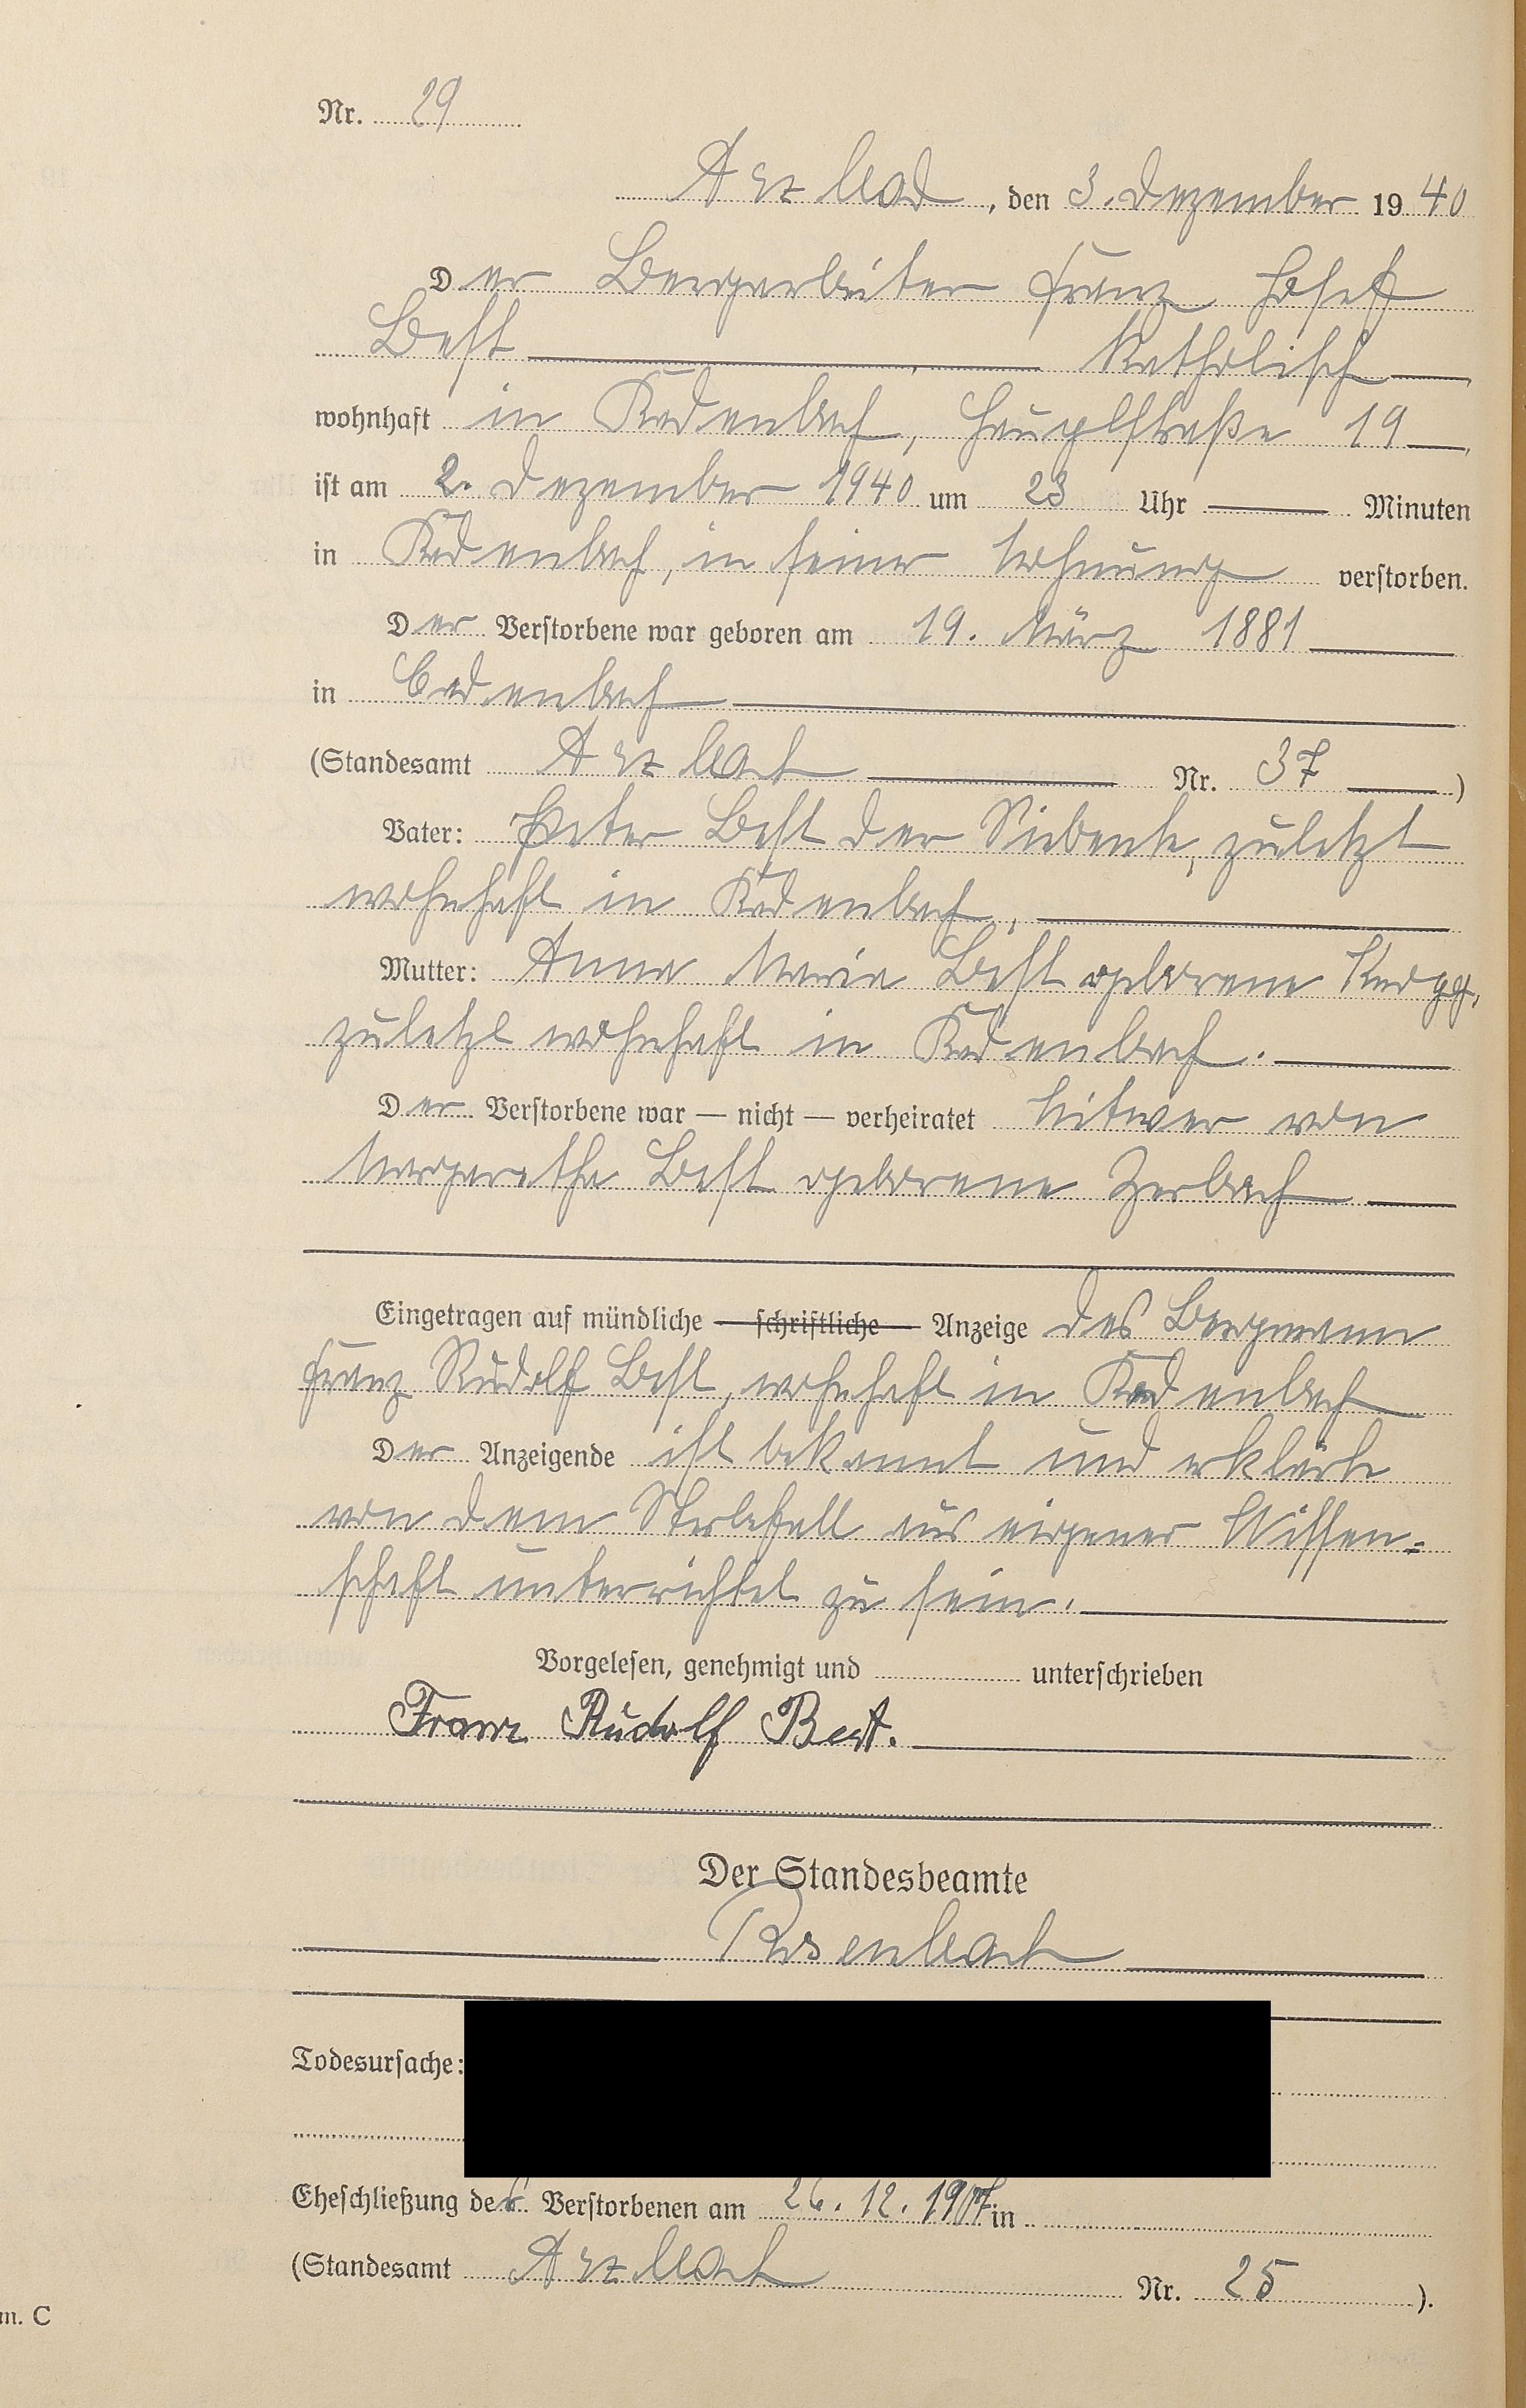 Nr. 29
Arzbach, den 3. Dezember 1940
Der Bergarbeiter Franz Josef
Best katholisch
wohnhaft in Kadenbach, Hauptstraße 19
ist am 2. Dezember 1940 um 23 Uhr Minuten
in Kadenbach, in seiner Wohnung verstorben.
Der Verstorbene war geboren am 19. März 1881
in Cadenbach
(Standesamt Arzbach Nr. 37)
Vater: Peter Best der Siebente, zuletzt
wohnhaft in Kadenbach,
Mutter: Anna Maria Best geborene
zuletzt wohnhaft in Kadenbach.
Der Verstorbene war — nicht — verheiratet Witwer von
Margaretha Best geborene Zerbach
Eingetragen auf mündliche — schriftliche — Anzeige des Bergmann
Franz Rudolf Best, wohnhaft in Kadenbach
Der Anzeigende ist bekannt und erklärte
von dem Sterbefall aus eigener Wissen=
schaft unterrichtet zu sein.
Vorgelesen, genehmigt und unterschrieben
Franz Rudolf Best.
Der Standesbeamte
Rosenbach
Todesursache:
Eheschließung des Verstorbenen am 26.12.1907 in
(Standesamt Arzbach Nr. 25).
m. C